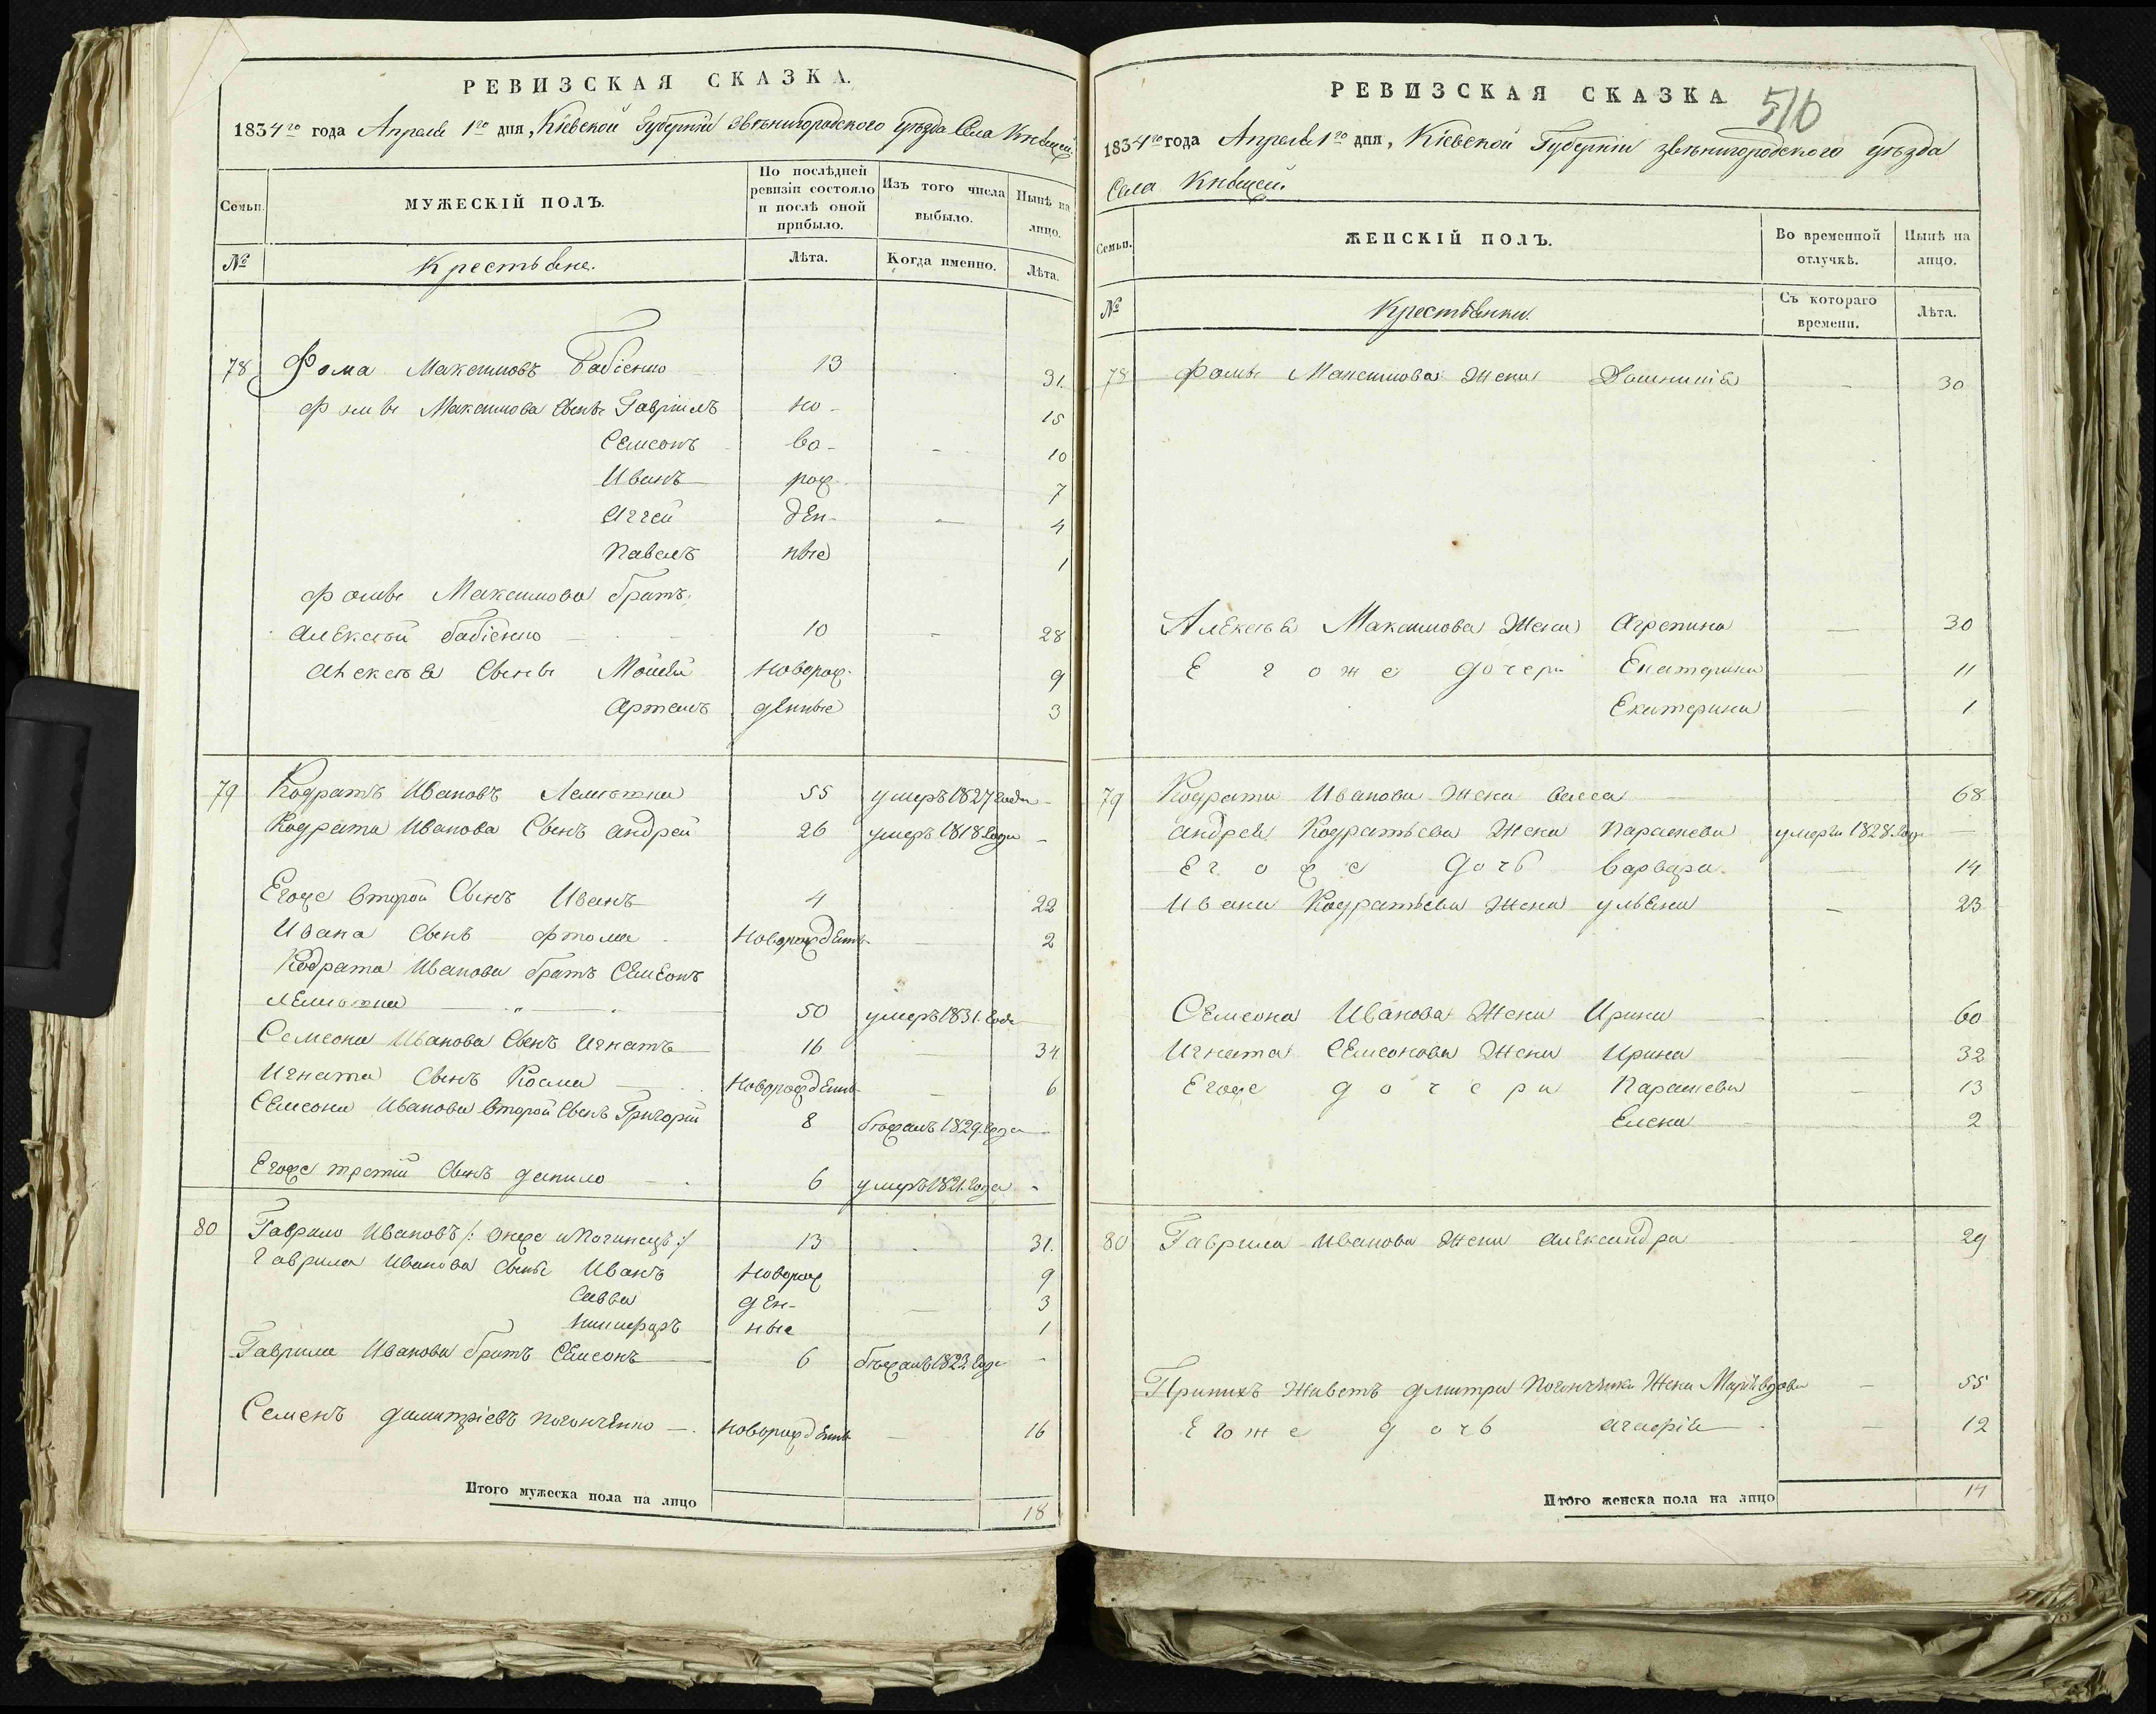 РЕВИЗСКАЯ СКАЗКА.
1834го года Апреля 1го дня, Кіевской Губерніи Звѣнигородского уѣзда Села
Семьи.
МУЖЕСКІЙ ПОЛЪ.
По послѣдней ревизіи состояло и послѣ оной прибыло.
Изъ того числа выбыло.
Нынѣ на лицо.
№
Крестьяне.
Лѣта.
Когда именно.
Лѣта.
78 Фома Максимовъ Бабіенко 13 31.
Фомы Максимова Сыны Гавріилъ но- 15
Семіонъ во- - 10
Иванъ рож- 7
Аггей ден- - 4
Павелъ ные 1
Фомы Максимова братъ
Алексѣй Бабіенко 10 - 28
Алексѣя Сыны Мойсей новорож- 9
Артемъ денные 3
79 Кодратъ Ивановъ 55 умеръ 1827 года -
Кодрата Иванова Сынъ Андрей 26 умеръ 1818 года -
Егоже второй Сынъ Иванъ 4 22
Ивана Сынъ Фтома новорожденъ 2
Кодрата Иванова братъ Семеонъ
50 умеръ 1831. года
Семеона Иванова Сынъ Игнатъ 16 34
Игната Сынъ Косма новорожденъ 6
Семеона Иванова второй Сынъ Григорій 8 бѣжалъ 1829. года
Егоже третій Сынъ Данило 6 умеръ 1821. года -
80 Гаврило Ивановъ /: онже :/ 13 31.
Гаврила Иванова Сыны Иванъ новорож 9
Савва ден- 3
Никифоръ ные 1
Гаврила Иванова братъ Семеонъ 6 бѣжалъ 1823. года -
Семенъ Димитріевъ новорожденъ 16
Итого мужеска пола на лицо 18
РЕВИЗСКАЯ СКАЗКА
516
1834го года Апреля 1го дня, Кіевской Губерніи Звѣнигородского уѣзда
Села
Семьи.
ЖЕНСКІЙ ПОЛЪ.
Во временной отлучкѣ.
Нынѣ на лицо.
№
Крестьянки.
Съ котораго времени.
Лѣта.
78 Фомы Максимова Жена Домникія - 30
Алексѣя Максимова Жена Агрепина - 30
Егоже дочери Екатерина - 11
Екатерина - 1
79 Кодрата Иванова Жена Васса - 68
Андрея Кодратьева Жена Параскева умерла 1828. года -
Егоже дочь Варвара - 14
Ивана Кодратьева Жена Ульяна - 23
Семеона Иванова Жена Ирина - 60
Игната Семеонова Жена Ирина - 32
Егоже дочери Параскева - 13
Елена 2
80 Гаврила Иванова Жена Александра - 29
Принихъ Живетъ Дмитра Жена Марія вдова - 55
Егоже дочь Агафія - 12
Итого женска пола на лицо 14